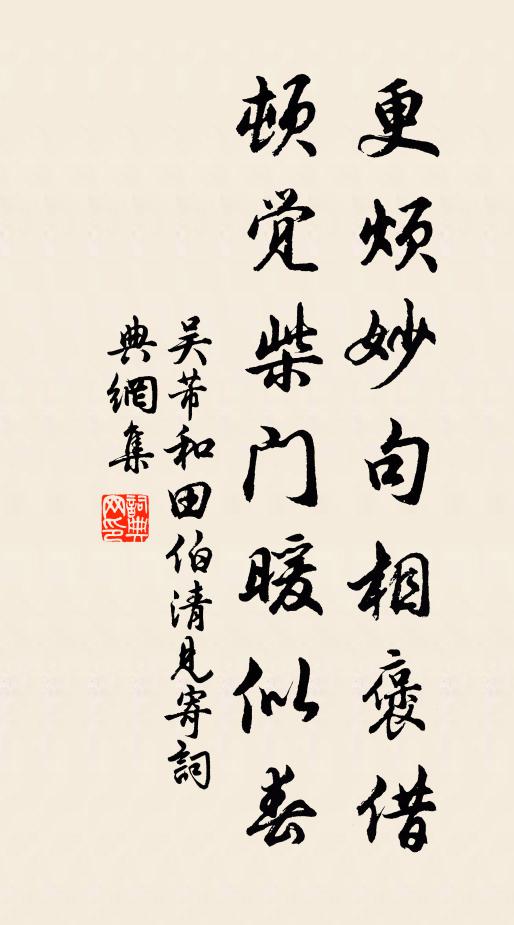 更烦妙句相褒借
顿觉柴门暖似春
吴芾和田伯清見寄詞
典網集
詞典網印